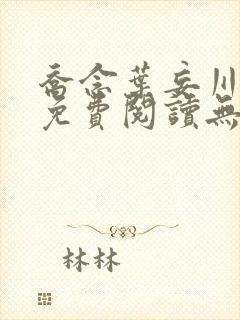 喬念葉妄川
免費閱讀無
林林